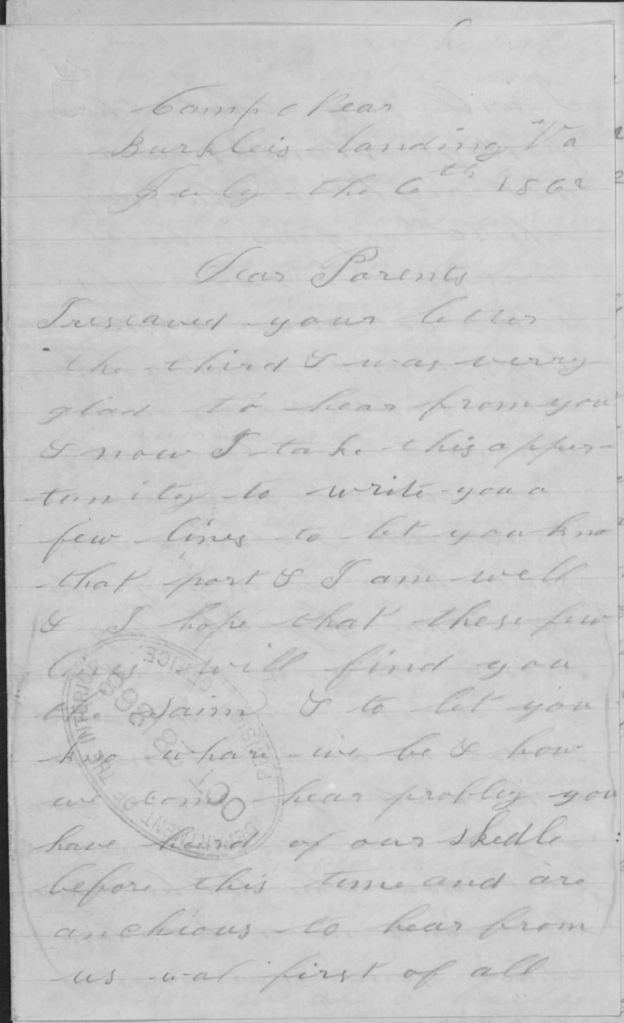 Camp
Burkleis landing Va
July the 6th 1862
Dear Parents
I rescaved your letter
the third & was verry
glad to hear from you
& now I take this apper-
tunity to write you a
few lines to let you kno
that port & I am well
& I hope that these few
lines will find you
the saim & to let you
kno whare we be & how
we come hear probbly you
have heard of our skedle
before this time and are
anchious to hear from
us wal first of all
DEPARTMENT OF THE INTERIOR
OFFICE
OCT 23